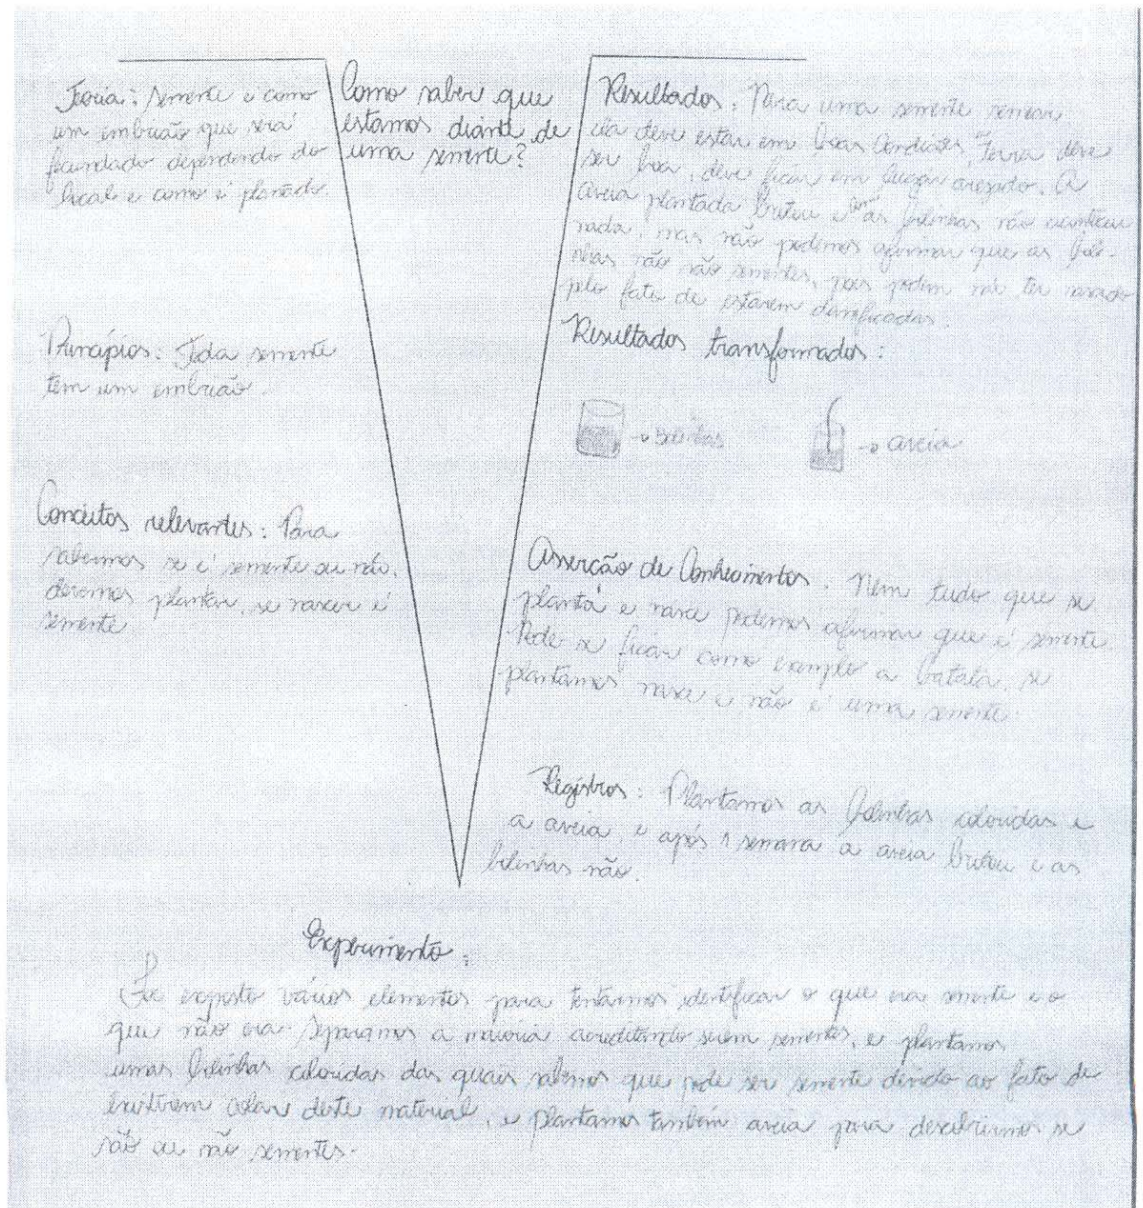 Teoria: Semente é como
um embrião que será
fecundado dependendo do
local e como é plantado.
Princípios: Toda semente
tem um embrião.
Conceitos relevantes: Para
sabermos se é semente ou não,
devemos plantar, se nascer é
semente.
Como saber que
estamos diante de
uma semente?
Resultados: Para uma semente
ela deve estar em boas condições, a terra deve
ser boa, deve ficar em lugar arejado. A
aveia plantada brotou e com as bolinhas não aconteceu
nada, mas não podemos afirmar que as boli-
nhas não são sementes, pois podem não ter nascido
pelo fato de estarem danificadas.
Resultados transformados:
→ Bolinhas
→ aveia
Asserção de Conhecimentos: Nem tudo que se
planta e nasce podemos afirmar que é semente.
Pode se ficar como exemplo a batata, se
plantamos nasce e não é uma semente.
Registros: Plantamos as bolinhas coloridas e
a aveia, e após 1 semana a aveia brotou e as
bolinhas não.
Experimento:
Foi exposto vários elementos para tentarmos identificar o que era semente e o
que não era. Separamos a maioria acreditando serem sementes, e plantamos
umas bolinhas coloridas das quais sabemos que pode ser semente devido ao fato de
existirem colar deste material, e plantamos também aveia para descobrirmos se
são ou não sementes.